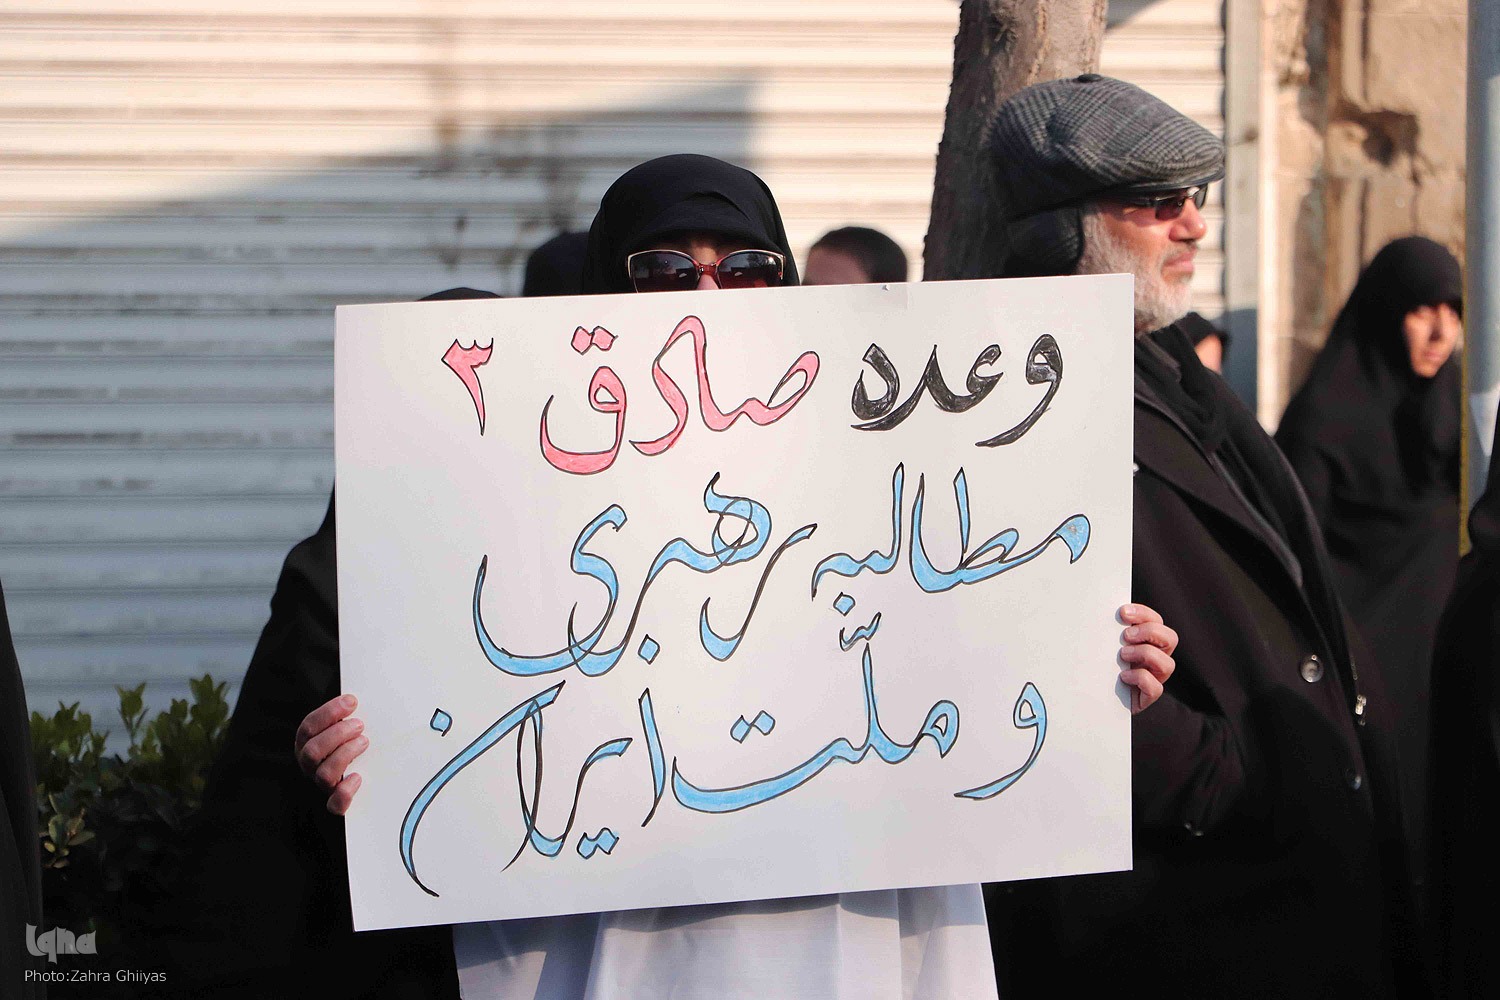 وعده صادق ۳
مطالبه رهبری
و ملّت ایران
Iqna
Photo:Zahra Ghiiyas